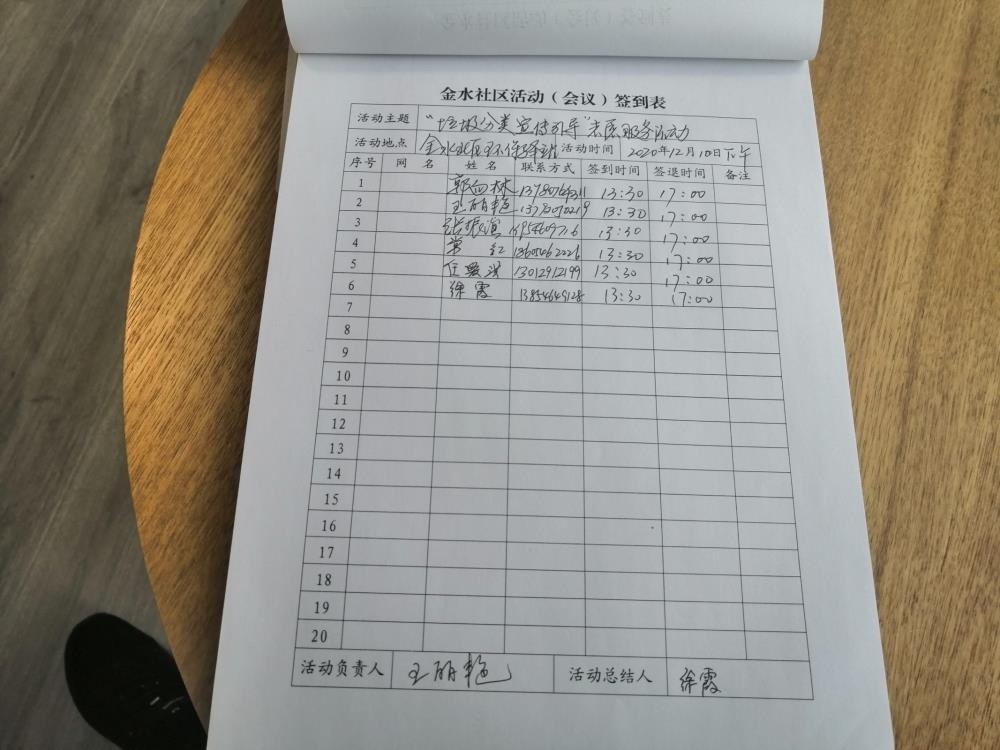 金水社区活动（会议）签到表
活动主题 "垃圾分类宣传引导"志愿服务活动
活动地点 金水社区环保驿站 活动时间 2020年12月10日下午
序号 网 名 姓 名 联系方式 签到时间 签退时间 备注
1 13:30 17:00
2 王丽艳 13:30 17:00
3 张振滨 13:30 17:00
4 常 红 13605462226 13:30 17:00
5 13012912199 13:30 17:00
6 徐霞 13854649128 13:30 17:00
7
8
9
10
11
12
13
14
15
16
17
18
19
20
活动负责人 王丽艳 活动总结人 徐霞